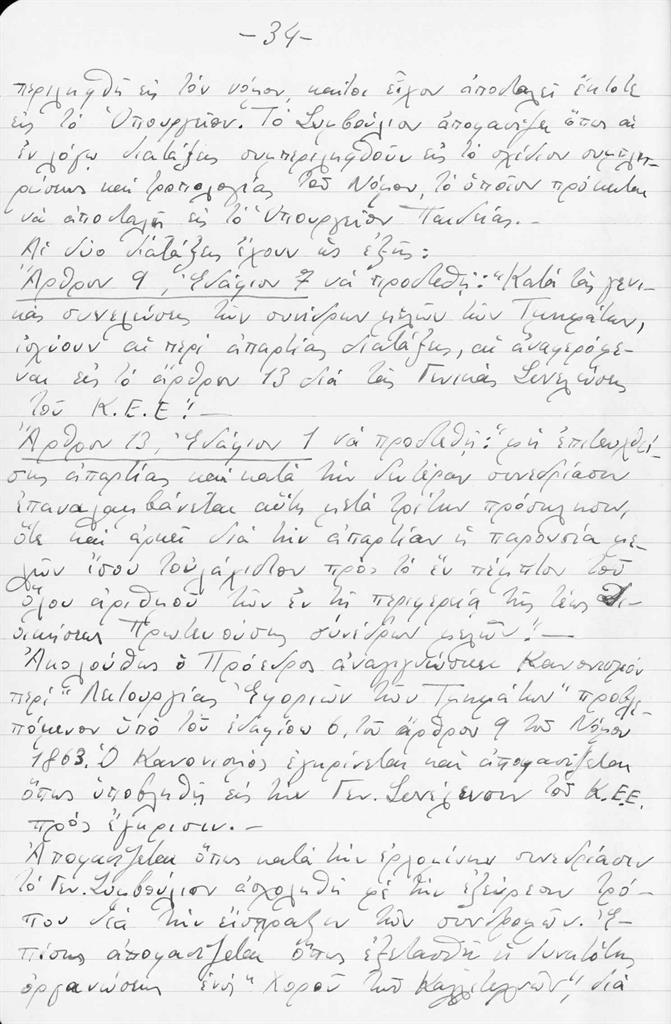 -34-
περιληφθῆ εἰς τόν νόμον, καίτοι εἶχον ἀποσταλεῖ ἔκτοτε
εἰς τό Ὑπουργεῖον. Τό Συμβούλιον ἀποφασίζει ὅπως αἱ
ἐν λόγῳ διατάξεις συμπεριληφθοῦν εἰς τό σχέδιον συμπλη-
ρώσεως καί τροπολογίας τοῦ Νόμου, τό ὁποῖον πρόκειται
νά ἀποσταλῇ εἰς τό Ὑπουργεῖον Παιδείας.-
Αἱ δύο διατάξεις ἔχουν ὡς ἑξῆς:
Ἄρθρον 9, Ἐδάφιον 7 νά προστεθῇ: "Κατά τάς γενι-
κάς συνελεύσεις τῶν συνέδρων μελῶν τῶν Τμημάτων,
ἰσχύουν αἱ περί ἀπαρτίας διατάξεις, αἱ ἀναφερόμε-
ναι εἰς τό ἄρθρον 13 διά τάς Γενικάς Συνελεύσεις
τοῦ Κ.Ε.Ε".-
Ἄρθρον 13, Ἐδάφιον 1 νά προστεθῇ: "μή ἐπιτευχθεί-
σης ἀπαρτίας καί κατά τήν δευτέραν συνεδρίασιν
ἐπαναλαμβάνεται αὕτη μετά τρίτην πρόσκλησιν,
ὅτε καί ἀρκεῖ διά τήν ἀπαρτίαν ἡ παρουσία με-
λῶν ἴσου τοὐλάχιστον πρός τό ἕν πέμπτον τοῦ
ὅλου ἀριθμοῦ τῶν ἐν τῇ περιφερείᾳ τῆς τέως Δι-
οικήσεως Πρωτευούσης συνέδρων μελῶν".-
Ἀκολούθως ὁ Πρόεδρος ἀναγιγνώσκει Κανονισμόν
περί "Λειτουργίας Ἐφοριῶν τῶν Τμημάτων" προβλε-
πόμενον ὑπό τοῦ ἐδαφίου 6, τοῦ ἄρθρου 9 τοῦ Νόμου
1863. Ὁ Κανονισμός ἐγκρίνεται καί ἀποφασίζεται
ὅπως ὑποβληθῇ εἰς τήν Γεν. Συνέλευσιν τοῦ Κ.Ε.Ε.
πρός ἔγκρισιν.-
Ἀποφασίζεται ὅπως κατά τήν ἐρχομένην συνεδρίασιν
τό Γεν. Συμβούλιον ἀσχοληθῇ μέ τήν ἐξεύρεσιν τρό-
που διά τήν εἴσπραξιν τῶν συνδρομῶν. Ἐ-
πίσης ἀποφασίζεται ὅπως ἐξετασθῇ ἡ δυνατότης
ὀργανώσεως ἑνός "Χοροῦ τῶν Καλλιτεχνῶν", διά